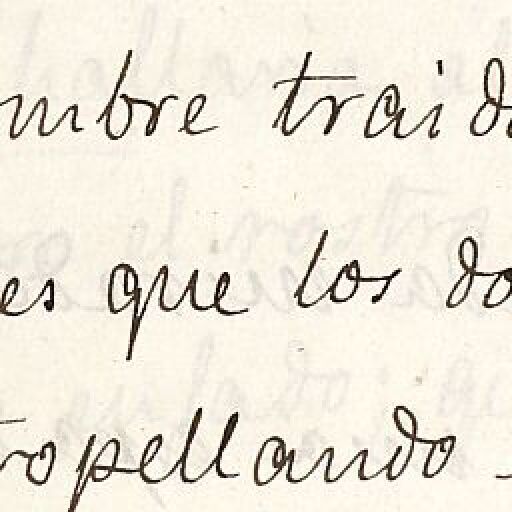 mbre traido
es que los do
tropellando -